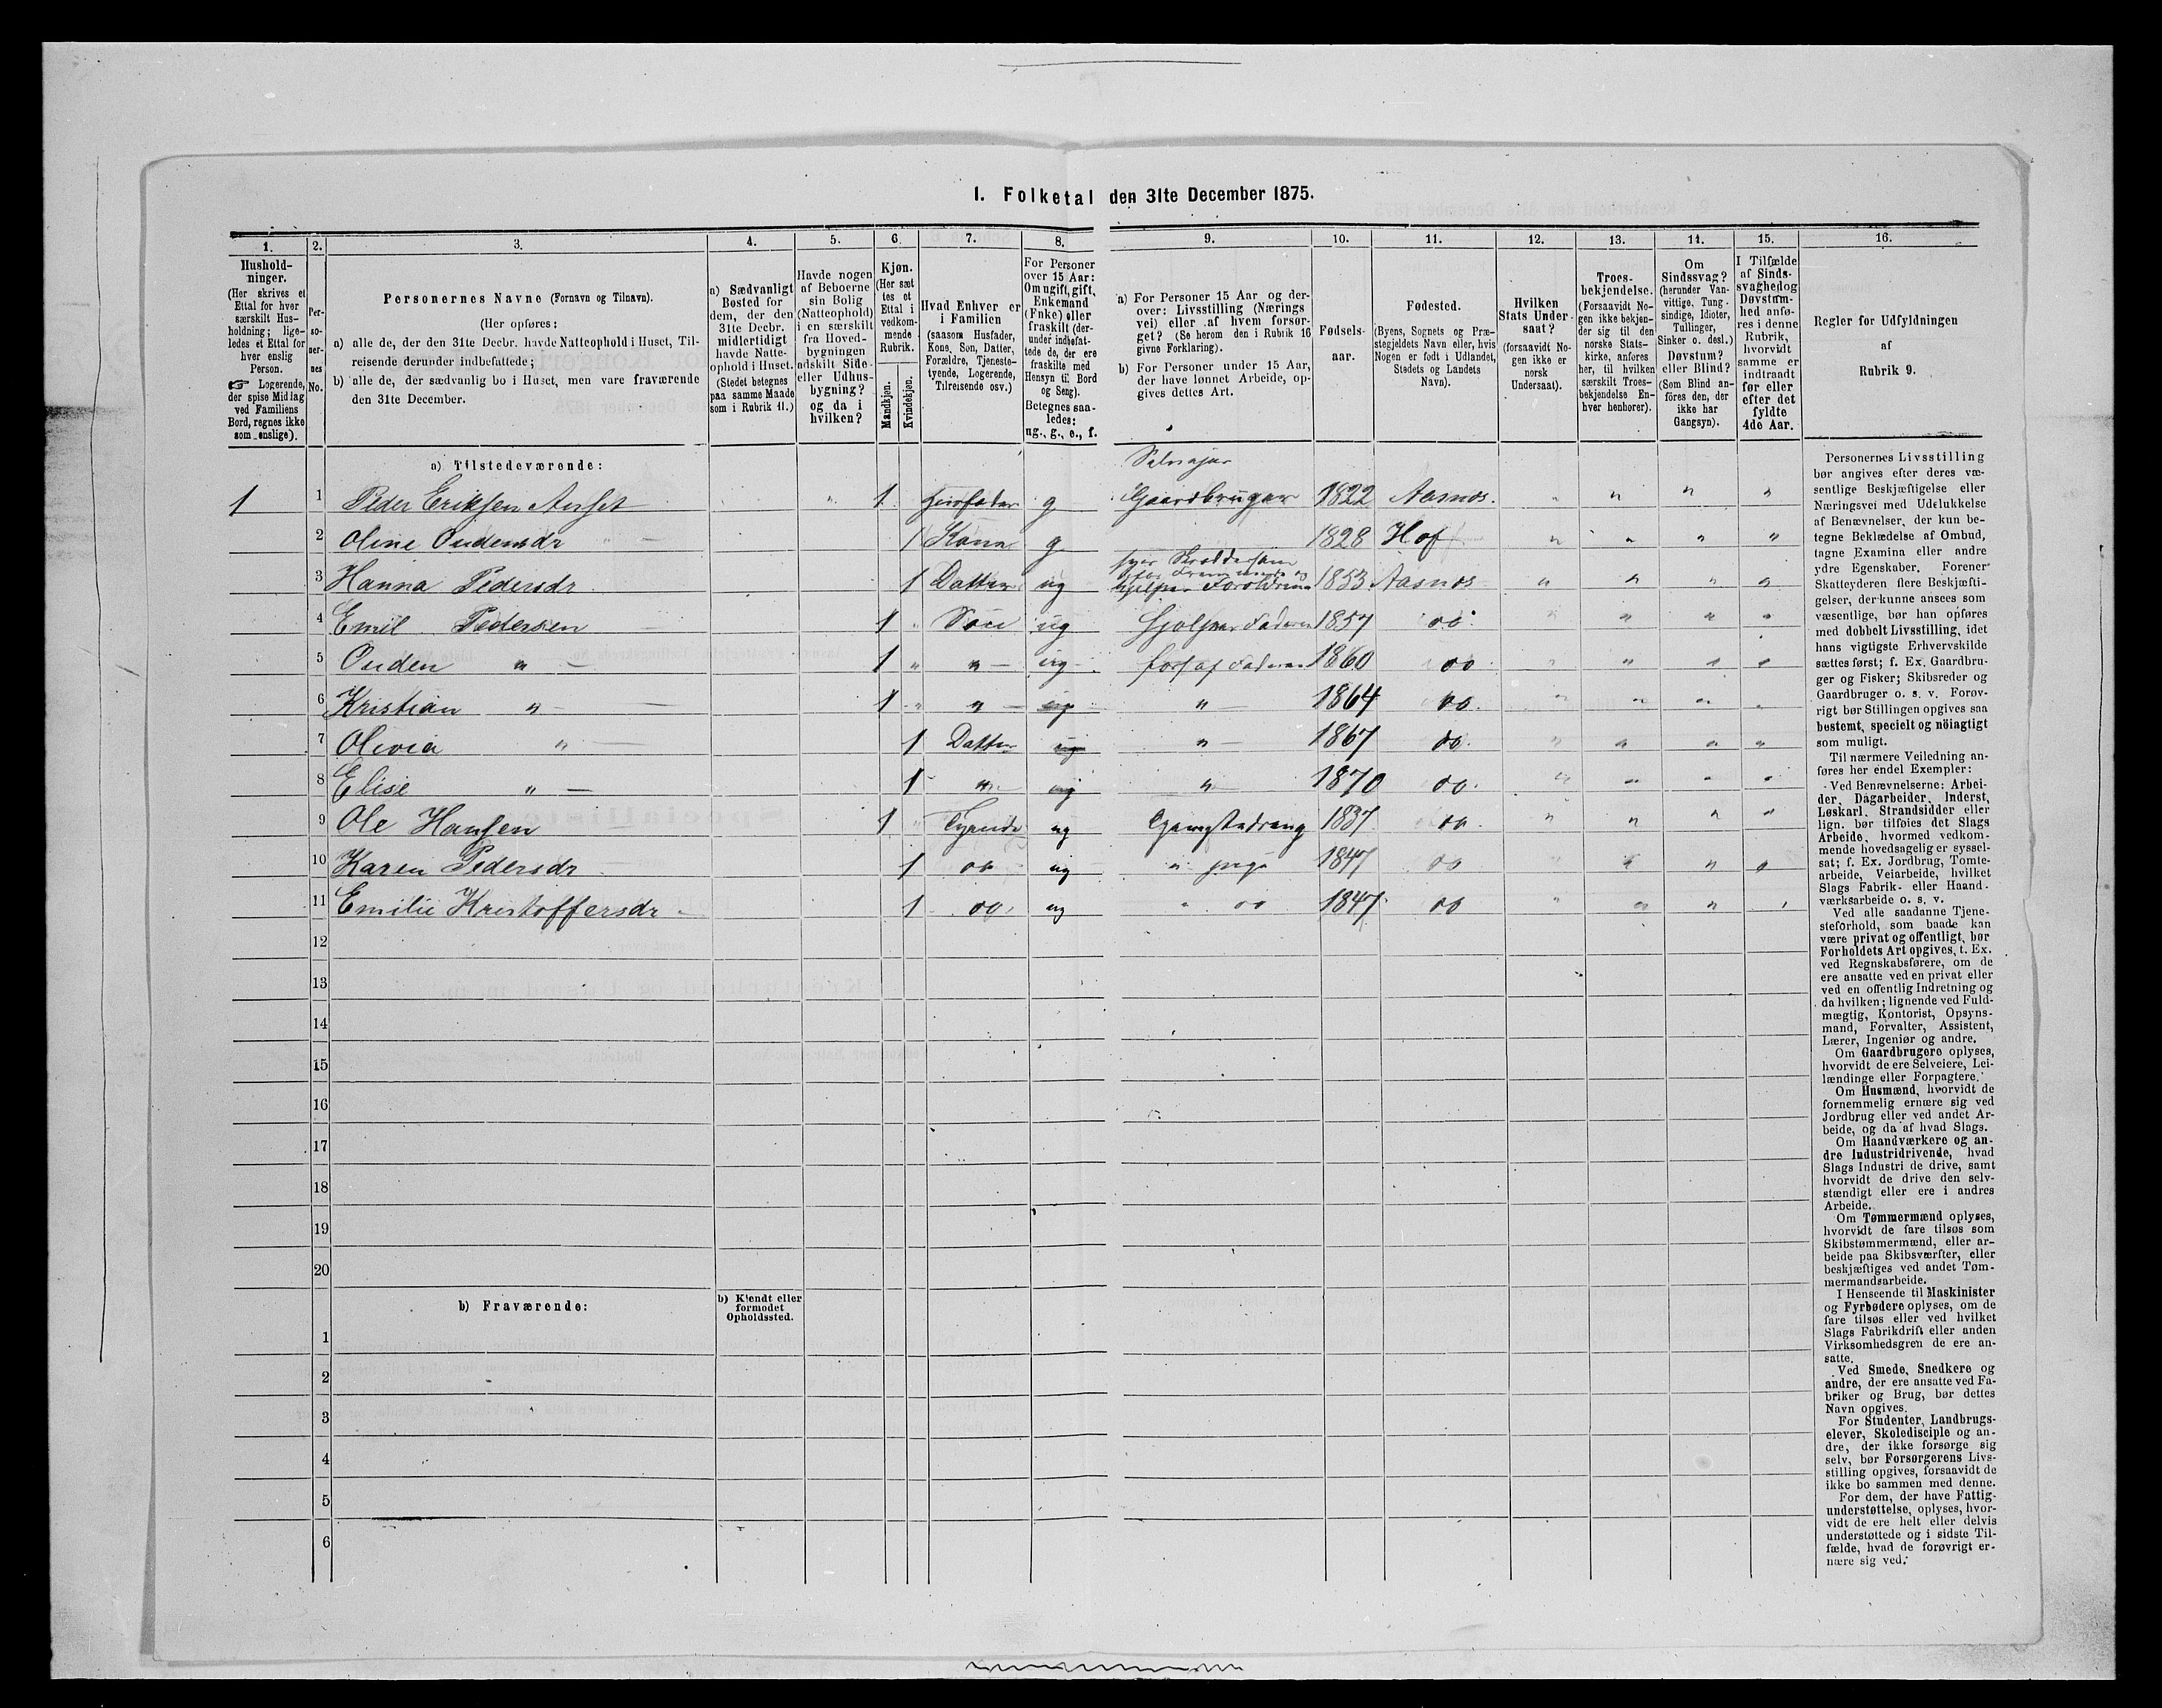 1. Folketal den 31te December 1875.
1. 2. 3. 4. 5. 6. 7. 8. 9. 10. 11. 12. 13. 14. 15. 16.
Hushold-
ninger.
(Her skrives et
Ettal for hver
særskilt Hus-
holdning; lige-
ledes et Ettal for
hver enslig
Person.
☞ Logerende,
der spise Middag
ved Familiens
Bord, regnes ikke
som enslige).
Per-
so-
ner-
nes
No.
Personernes Navne (Fornavn og Tilnavn).
(Her opføres:
a) alle de, der den 31te Decbr. havde Natteophold i Huset, Til-
reisende derunder indbefattede;
b) alle de, der sædvanlig bo i Huset, men vare fraværende
den 31te December.
a) Sædvanligt
Bosted for
dem, der den
31te Decbr.
midlertidigt
havde Natte-
ophold i Huset.
(Stedet betegnes
paa samme Maade
som i Rubrik 11.)
Havde nogen
af Beboerne
sin Bolig
(Natteophold)
i en særskilt
fra Hoved-
bygningen
adskilt Side-
eller Udhus-
bygning?
og da i
hvilken?
Kjøn.
(Her sæt
tes et
Ettal i
vedkom-
mende
Rubrik.
Mandkjøn.
Kvindekjøn.
Hvad Enhver er
i Familien
(saasom Husfader,
Kone, Søn, Datter,
Forældre, Tjeneste-
tyende, Logerende,
Tilreisende osv.)
For Personer
over 15 Aar:
Om ugift, gift,
Enkemand
(Enke) eller
fraskilt (der-
under indbefat-
tede de, der ere
fraskilte med
Hensyn til Bord
og Seng).
Betegnes saa-
ledes:
ug., g., e., f.
a) For Personer 15 Aar og der-
over: Livsstilling (Nærings
vei) eller af hvem forsør-
get? (Se herom den i Rubrik 16
givne Forklaring).
b) For Personer under 15 Aar,
der have lønnet Arbeide, op-
gives dettes Art.
Fødsels-
aar.
Fødested.
(Byens, Sognets og Præ-
stegjeldets Navn eller, hvis
Nogen er født i Udlandet,
Stedets og Landets
Navn).
Hvilken
Stats Under-
saat?
(forsaavidt No-
gen ikke er
norsk
Undersaat).
Troes-
bekjendelse.
(Forsaavidt No-
gen ikke bekjen-
der sig til den
norske Stats-
kirke, anføres
her, til hvilken
særskilt Troes-
bekjendelse En-
hver henhører).
Om
Sindssvag?
(herunder Van-
vittige, Tung-
sindige, Idioter,
Tullinger,
Sinker o. desl.)
Døvstum?
eller Blind?
(Som Blind an-
føres den, der
ikke har
Gangsyn).
I Tilfælde
af Sinds-
svaghed og
Døvstum-
hed anfø-
res i denne
Rubrik,
hvorvidt
samme er
indtraadt
før eller
efter det
fyldte
4de Aar.
Regler for Udfyldningen
af
Rubrik 9.
a) Tilstedeværende:
Selveier
1 1 Peder Eriksen " 1 Husfader g Gaardbruger 1822 Aasnes. " " " "
2 Oline Oudensdr " — 1 Kone g 1828 Hof " " " "
3 Hanna Pedersdr 1 Datter ug hjelper Forældrene 1853 Aasnes " " " "
4 Emil Pedersen 1 " Søn ug hjelper Faderen 1857 do " " " "
5 Ouden " — 1 " " — ug fors af Faderen 1860 do " " " "
6 Kristian " — 1 " " — ug " — 1864 do " " " "
7 Olivia " — 1 Datter ug " — 1867 do. " " " "
8 Elise " — 1 " ug " 1870 do. " " " "
9 Ole Hansen 1 " Tyende ug Gaardsdreng 1837 do " " " "
10 Karen Pedersdr 1 do ug " pige 1847 do " " " "
11 Emilie Kristoffersdr 1 do ug " do 1847 do " " " "
12
13
14
15
16
17
18
19
20
b) Fraværende:
b) Kjendt eller
formodet
Opholdssted.
1
2
3
4
5
6
Personernes Livsstilling
bør angives efter deres væ-
sentlige Beskjæftigelse eller
Næringsvei med Udelukkelse
af Benævnelser, der kun be-
tegne Beklædelse af Ombud,
tagne Examina eller andre
ydre Egenskaber. Forener
Skatteyderen flere Beskjæfti-
gelser, der kunne ansees som
væsentlige, bør han opføres
med dobbelt Livsstilling, idet
hans vigtigste Erhvervskilde
sættes først; f. Ex. Gaardbru-
ger og Fisker; Skibsreder og
Gaardbruger o. s. v. Forøv-
rigt bør Stillingen opgives saa
bestemt, specielt og nöiagtigt
som muligt.
Til nærmere Veiledning an-
føres her endel Exempler:
Ved Benævnelserne: Arbei-
der, Dagarbeider, Inderst,
Løskarl, Strandsidder eller
lign. bør tilføies det Slags
Arbeide, hvormed vedkom-
mende hovedsagelig er syssel-
sat; f. Ex. Jordbrug, Tomte-
arbeide, Veiarbeide, hvilket
Slags Fabrik- eller Haand-
værksarbeide o. s. v.
Ved alle saadanne Tjene-
steforhold, som baade kan
være privat og offentligt, bør
Forholdets Art opgives, t. Ex.
ved Regnskabsførere, om de
ere ansatte ved en privat eller
ved en offentlig Indretning og
da hvilken; lignende ved Fuld-
mægtig, Kontorist, Opsyns-
mand, Forvalter, Assistent,
Lærer, Ingeniør og andre.
Om Gaardbrugere oplyses,
hvorvidt de ere Selveiere, Lei-
lændinge eller Forpagtere.
Om Husmænd, hvorvidt de
fornemmelig ernære sig ved
Jordbrug eller ved andet Ar-
beide, og da af hvad Slags.
Om Haandværkere og an-
dre Industridrivende, hvad
Slags Industri de drive, samt
hvorvidt de drive den selv-
stændigt eller ere i andres
Arbeide.
Om Tømmermænd oplyses,
hvorvidt de fare tilsøs som
Skibstømmermænd, eller ar-
beide paa Skibsværfter, eller
beskjæftiges ved andet Tøm-
mermandsarbeide.
I Henseende til Maskinister
og Fyrbødere oplyses, om de
fare tilsøs eller ved hvilket
Slags Fabrikdrift eller anden
Virksomhedsgren de ere an-
satte.
Ved Smede, Snedkere og
andre, der ere ansatte ved Fa-
briker og Brug, bør dettes
Navn opgives.
For Studenter, Landbrugs-
elever, Skoledisciple og an-
dre, der ikke forsørge sig
selv, bør Forsørgerens Livs-
stilling opgives, forsaavidt de
ikke bo sammen med denne.
For dem, der have Fattig-
understøttelse, oplyses, hvor-
vidt de ere helt eller delvis
understøttede og i sidste Til-
fælde, hvad de forøvrigt er-
nære sig ved.